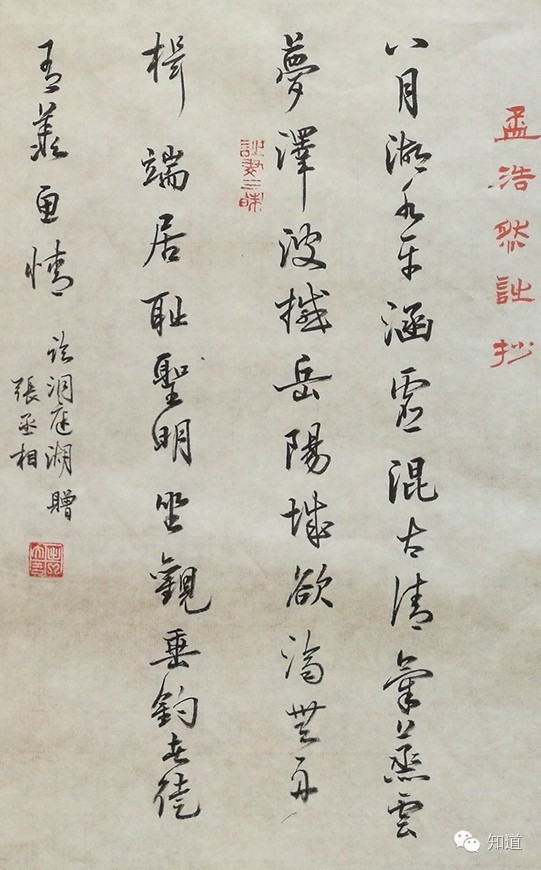 孟浩然詩抄
八月湖水平涵虛混古清氣蒸雲
夢澤波撼岳陽城欲濟無舟
楫端居耻聖明坐觀垂釣者徒
有羨魚情
臨洞庭湖贈
張丞相
知道